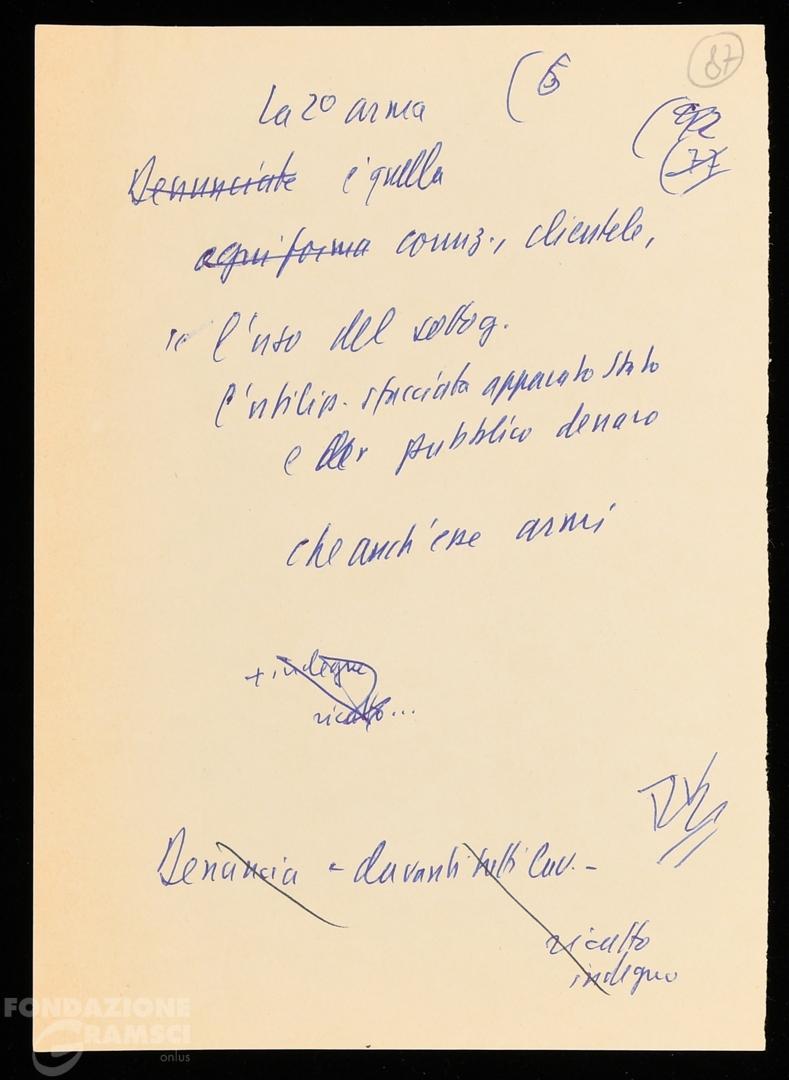 87
La 2º arma (6
(82
(77
Denunciate è quella
ogni forma corruz., clientele,
l'uso del sottog.
l'utiliz. sfacciata apparato Stato
e del pubblico denaro
che anch'esse armi
+ indegno
ricatto...
Denuncia - davanti tutti lav. -
ricatto
indegno
FONDAZIONE
GRAMSCI
onlus